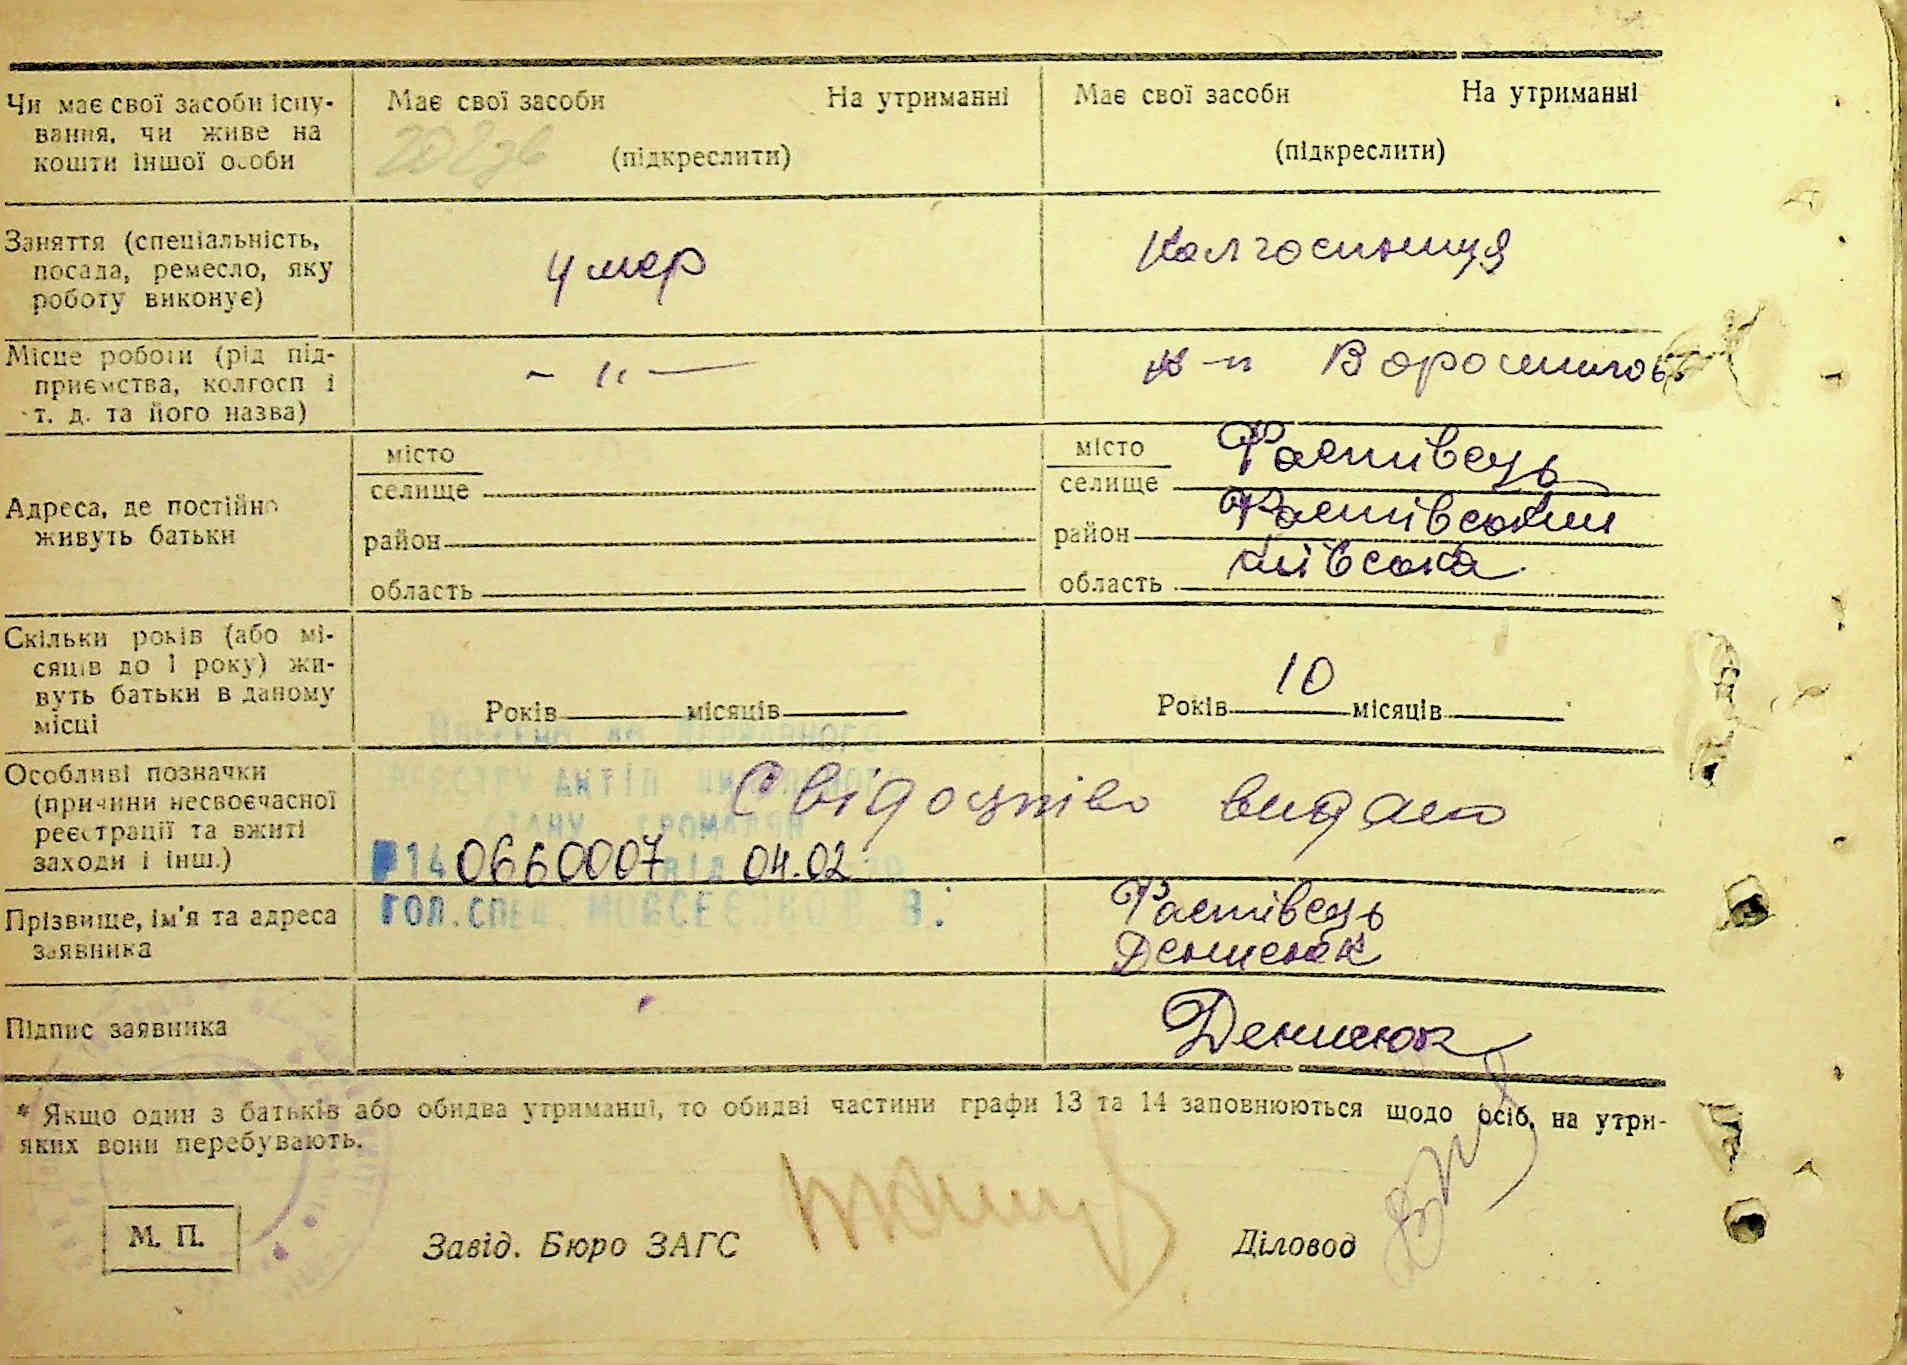 Чи має свої засоби існу-
вання, чи живе на
кошти іншої особи
Має свої засоби На утриманні
(підкреслити)
Має свої засоби На утриманні
(підкреслити)
Заняття (спеціальність,
посада, ремесло, яку
роботу виконує)
Умер
Колгоспниця
Місце роботи (рід під-
приємства, колгосп і
т. д. та його назва)
- " -
к-п Ворошилов
Адреса, де постійно
живуть батьки
місто
селище
район
область
місто Фастівець
селище
район Фастівський
область Київська
Скільки років (або мі-
сяців до 1 року) жи-
вуть батьки в даному
місці
Років місяців
Років 10 місяців
Особливі позначки
(причини несвоєчасної
реєстрації та вжиті
заходи і інш.)
Внесено до Державного
реєстру актів цивільного
стану громадян
140660007 від 04.02
гол. спец.
Свідоцтво видано
Прізвище, ім'я та адреса
заявника
Фастівець
Денисюк
Підпис заявника
Денисюк
* Якщо один з батьків або обидва утриманці, то обидві частини графи 13 та 14 заповнюються щодо осіб, на утри-
яких вони перебувають.
М. П.
Завід. Бюро ЗАГС
Діловод